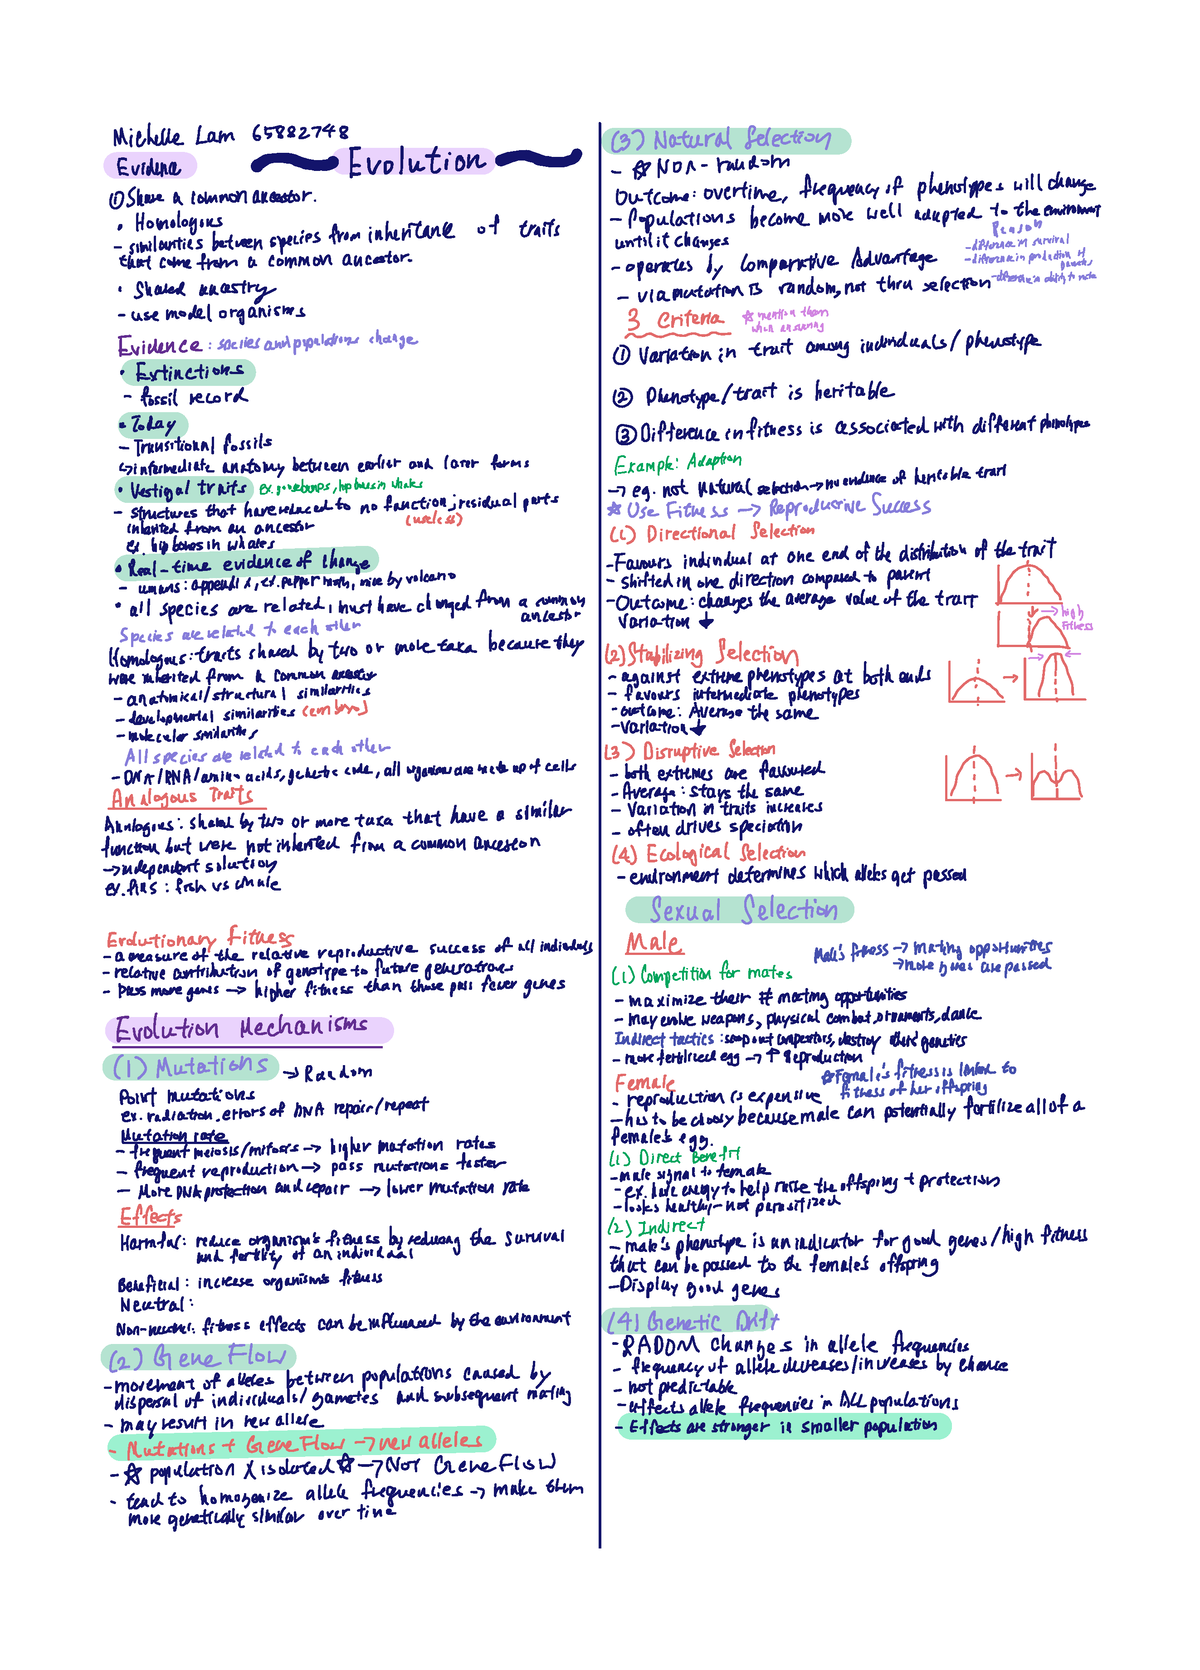 Michelle Lam 65882748
Evolution
Evidence
① Share a common ancestor.
• Homologous
- similarities between species from inheritance of traits
that come from a common ancestor.
• Shared ancestry
- use model organisms
Evidence : species and populations change
• Extinctions
- fossil record
• Today
- Transitional fossils
↳ intermediate anatomy between earlier and later forms
• Vestigal traits ex. goosebumps, hip bones in whales
- structures that have reduced to no function; residual parts
(useless)
inherited from an ancestor
ex. hip bones in whales
• Real-time evidence of change
- umans: appendix, ex. pepper moth, mice by volcano
• all species are related, must have changed from a common
ancestor
Species are related to each other
Homologous: traits shared by two or more taxa because they
were inherited from a common ancestor
- anatomical/structural similarities
- developmental similarities (embryo)
- molecular similarities
All species are related to each other
- DNA/RNA/amino acids, genetic code, all organisms are made up of cells
Analogous Traits
Analogous: shared by two or more taxa that have a similar
function but were not inherited from a common ancestor
→ independent solution
ex. fins : fish vs whale
Evolutionary Fitness
- a measure of the relative reproductive success of all individuals
- relative contribution of genotype to future generations
- pass more genes → higher fitness than those pass fewer genes
Evolution Mechanisms
(1) Mutations → Random
Point mutations
ex. radiation, errors of DNA repair/repeat
Mutation rate
- frequent meiosis/mitosis → higher mutation rates
- frequent reproduction → pass mutations faster
- More DNA protection and repair → lower mutation rate
Effects
Harmful: reduce organism's fitness by reducing the survival
and fertility of an individual
Beneficial: increase organisms fitness
Neutral:
Non-neutral: fitness effects can be influenced by the environment
(2) Gene Flow
- movement of alleles between populations caused by
dispersal of individuals/gametes and subsequent mating
- may result in new allele
- Mutations + Gene Flow → new alleles
- ☆ population X isolated ☆ → Not Gene Flow
- tend to homogenize allele frequencies → make them
more genetically similar over time
(3) Natural Selection
- ☆ Non-random
Outcome: overtime, frequency of phenotypes will change
- Populations become more well adapted to the environment
until it changes
Reason
- difference in survival
- difference in production of
gametes
- difference in ability to mate
- operates by Comparative Advantage
- via mutation is random, not thru selection
3 Criteria ☆ mention them
when answering
① Variation in trait among individuals/phenotype
② Phenotype/trait is heritable
③ Difference in fitness is associated with different phenotypes
Example: Adaption
→ eg. not natural selection → no evidence of heritable trait
☆ Use Fitness → Reproductive Success
(1) Directional Selection
- Favours individual at one end of the distribution of the trait
- shifted in one direction compared to parent
- Outcome: changes the average value of the trait
Variation ↓
→ high
fitness
(2) Stabilizing Selection
- against extreme phenotypes at both ends
- favours intermediate phenotypes
- outcome: Average the same
- variation ↓
(3) Disruptive Selection
- both extremes are favoured
- Average: stays the same
- Variation in traits increases
- often drives speciation
(4) Ecological Selection
- environment determines which alleles get passed
Sexual Selection
Male
Male's fitness → mating opportunities
→ more genes are passed
(1) Competition for mates
- maximize their # mating opportunities
- may evolve weapons, physical combat, ornaments, dance
Indirect tactics : scoop out competitors, destroy others' genetics
- more fertilized egg → ↑ Reproduction
Female
☆ Female's fitness is linked to
fitness of her offspring
- reproduction is expensive
- has to be choosy because male can potentially fertilize all of a
female's egg.
(1) Direct Benefit
- male signal to female
- ex. have energy to help raise the offspring + protection
- looks healthy - not parasitized
(2) Indirect
- male's phenotype is an indicator for good genes/high fitness
that can be passed to the female's offspring
- Display good genes
(4) Genetic Drift
- RADOM changes in allele frequencies
- frequency of allele decreases/increases by chance
- not predictable
- affects allele frequencies in ALL populations
- Effects are stronger in smaller population